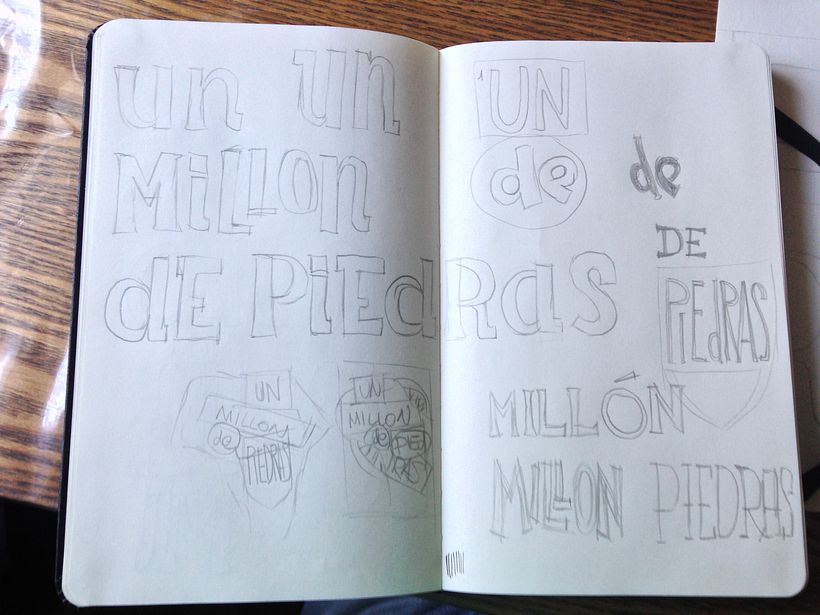 un un
MiLLON
dE PiEdRas
UN
MILLON
de
PIEDRAS
UN
MILLON
de PIED
RAS
UN
de de
DE
PIEdRAS
MILLÓN
MILLON PIEDRAS